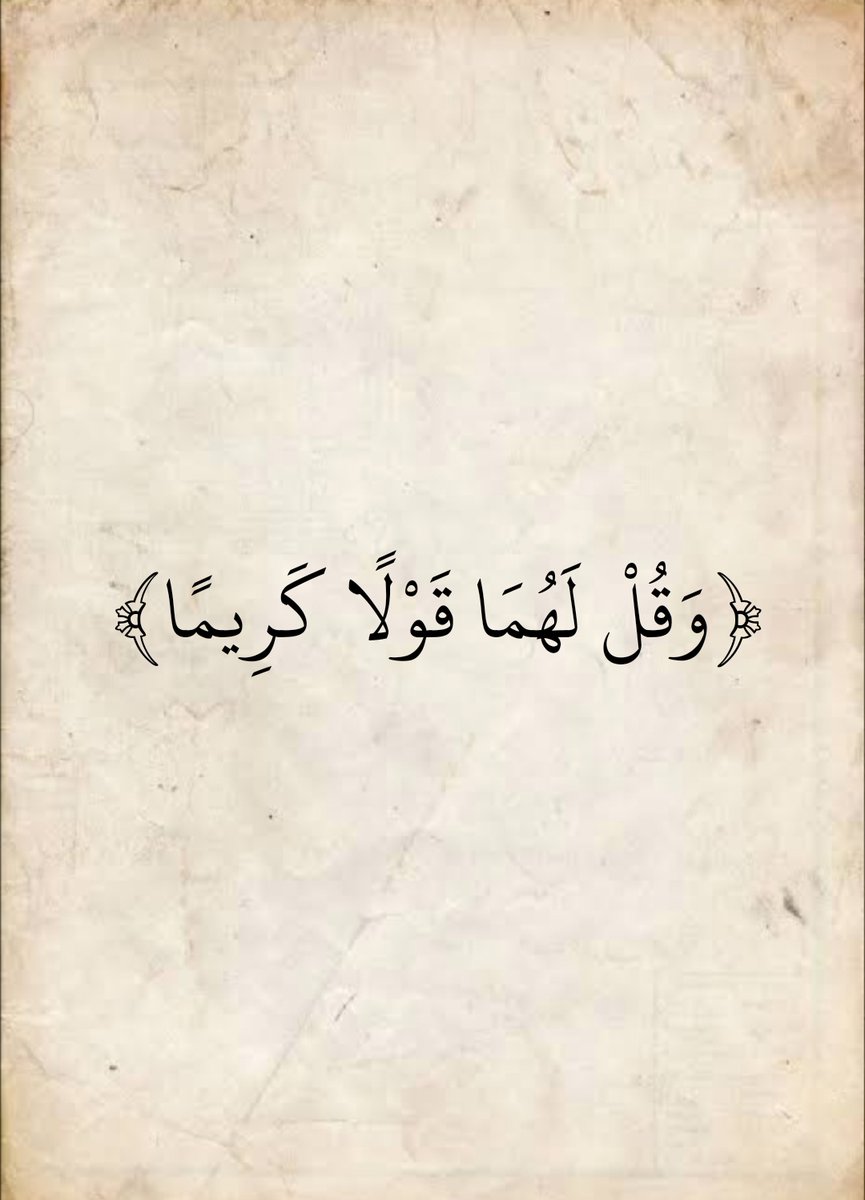 ﴿وَقُلْ لَهُمَا قَوْلًا كَرِيمًا﴾